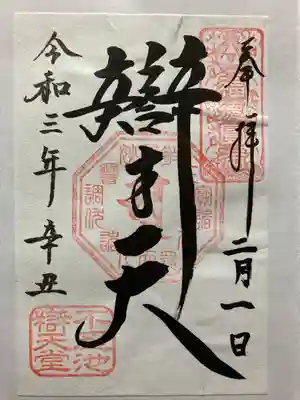 奉拝 二月一日
辯才天
令和三年 辛丑
不忍池
辯天堂